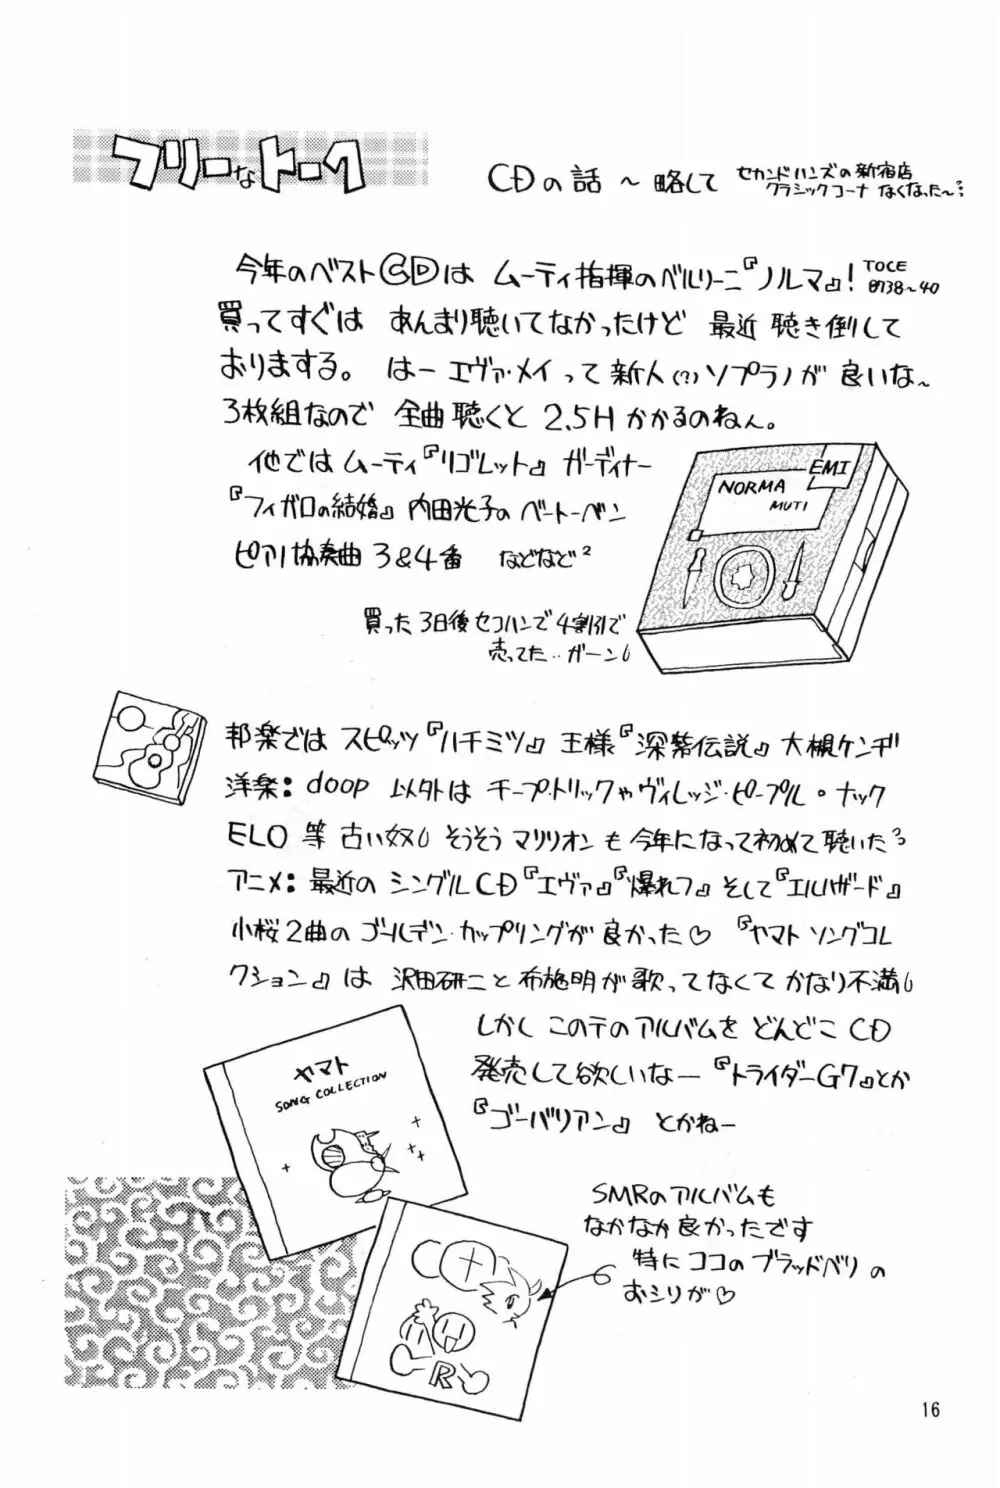 フリーなトーク
CDの話 ～ 略して
セカンドハンズの新宿店
クラシックコーナ なくなった～
今年のベストCDは ムーティ指揮のベルリーニ『ノルマ』！
TOCE
8738～40
買ってすぐは あんまり聴いてなかったけど 最近 聴き倒して
おりまする。 はー エヴァ・メイって 新人(?)ソプラノが 良いな～
3枚組なので 全曲聴くと 2.5H かかるのねん。
他では ムーティ『リゴレット』 ガーディナー
『フィガロの結婚』 内田光子の ベートーベン
ピアノ協奏曲 3&4番 などなど²
EMI
NORMA
MUTI
買った 3日後 セコハンで 4割引で
売ってた‥ガーン
邦楽では スピッツ『ハチミツ』 王様『深紫伝説』 大槻ケンヂ
洋楽： doop 以外は チープ・トリックや ヴィレッジ・ピープル・ナック
ELO 等 古い奴 そうそう マリリオン も 今年になって初めて聴いた
アニメ： 最近の シングルCD『エヴァ』『爆れフ』 そして『エルハザード』
小桜2曲の ゴールデン・カップリングが 良かった♡ 『ヤマト ソングコレ
クション』は 沢田研二と 布施明が 歌ってなくて かなり不満
しかし このテのアルバムを どんどこ CD
発売して欲しいなー 『トライダーG7』とか
『ゴーバリアン』 とかねー
ヤマト
SONG COLLECTION
SMRのアルバムも
なかなか良かったです
特に ココの ブラッドベリ の
おシリが♡
R
16